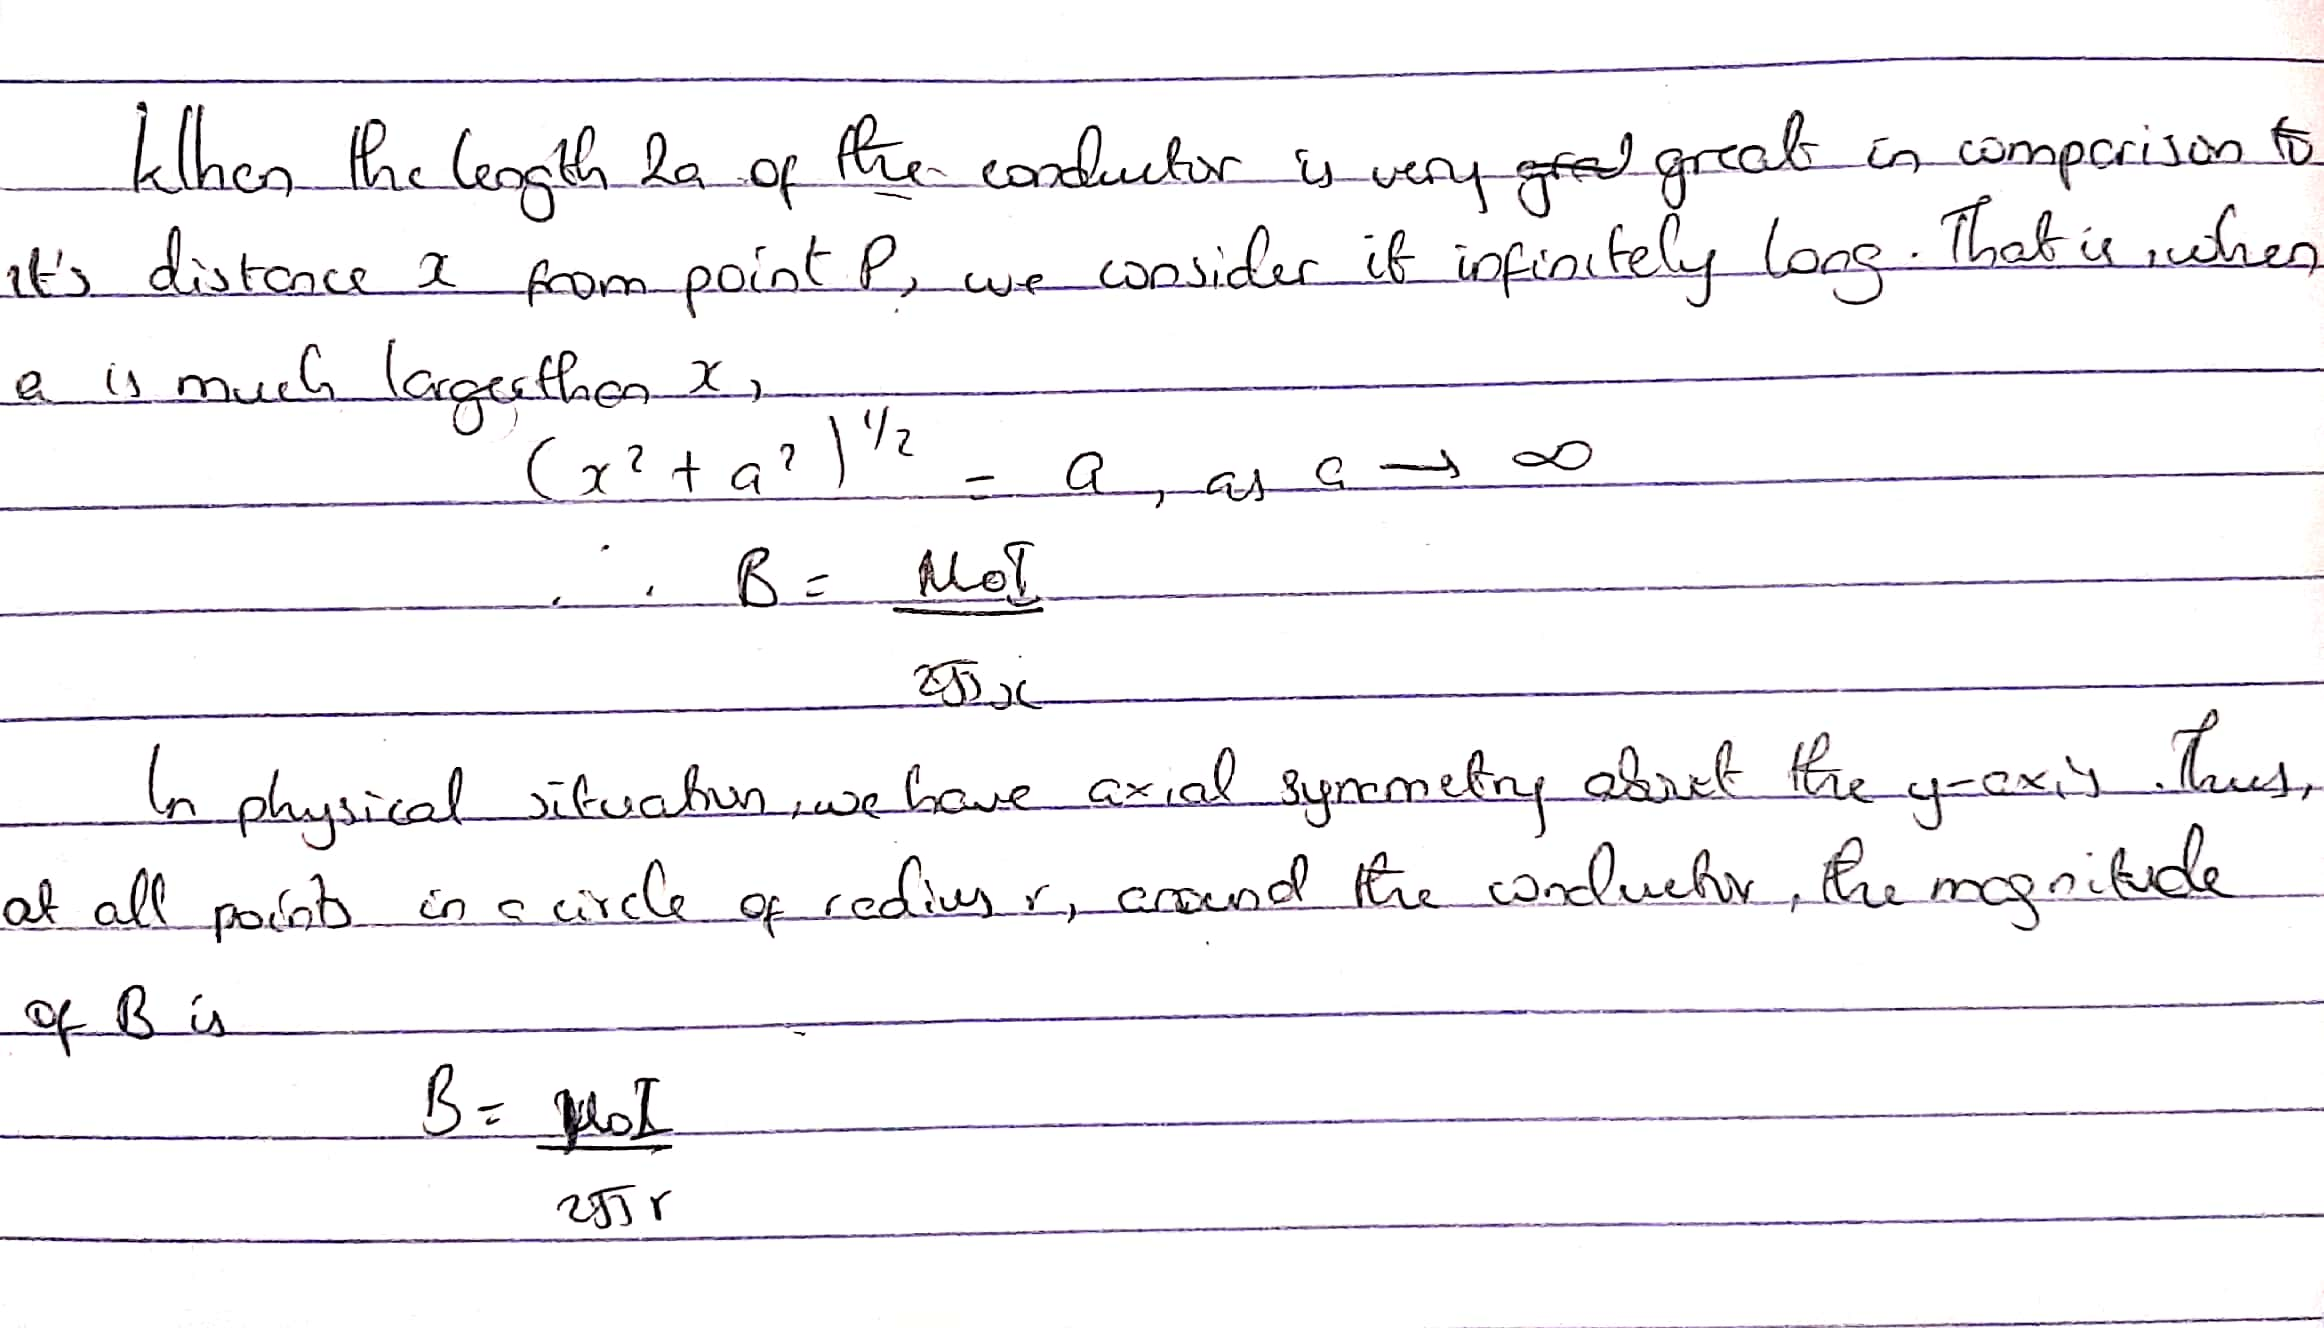 When the length 2a of the conductor is very great great in comparison to
it's distance x from point P, we consider it infinitely long. That is, when
a is much larger than x,
(x² + a²)^1/2 = a, as a → ∞
∴ B = μ0I
2πx
In physical situation, we have axial symmetry about the y-axis. Thus,
at all points in a circle of radius r, around the conductor, the magnitude
of B is
B = μ0I
2πr